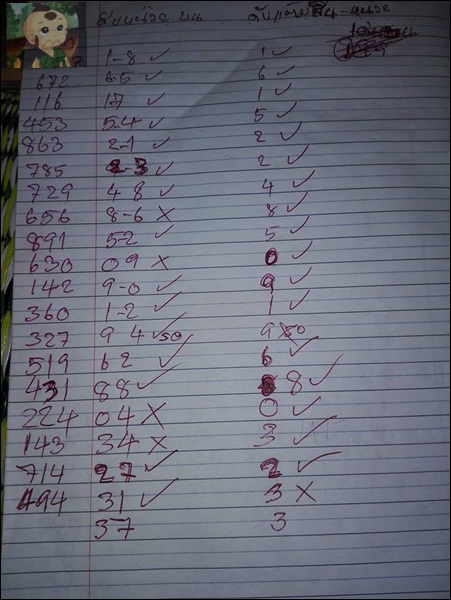 1-8 ✓ 1 ✓
672 6-5 ✓ 6 ✓
116 17 ✓ 1 ✓
453 5-4 ✓ 5 ✓
863 2-1 ✓ 2 ✓
785 2-3 ✓ 2 ✓
729 4 8 ✓ 4 ✓
656 8-6 X 8 ✓
891 5-2 ✓ 5 ✓
630 09 X 0 ✓
142 9-0 ✓ 9 ✓
360 1-2 ✓ 1 ✓
327 9 4 ✓ 50 9 X 50
519 62 ✓ 6 ✓
431 88 ✓ 8 ✓
224 04 X 0 ✓
143 34 X 3 ✓
714 27 ✓ 2 ✓
494 31 ✓ 3 X
37 3